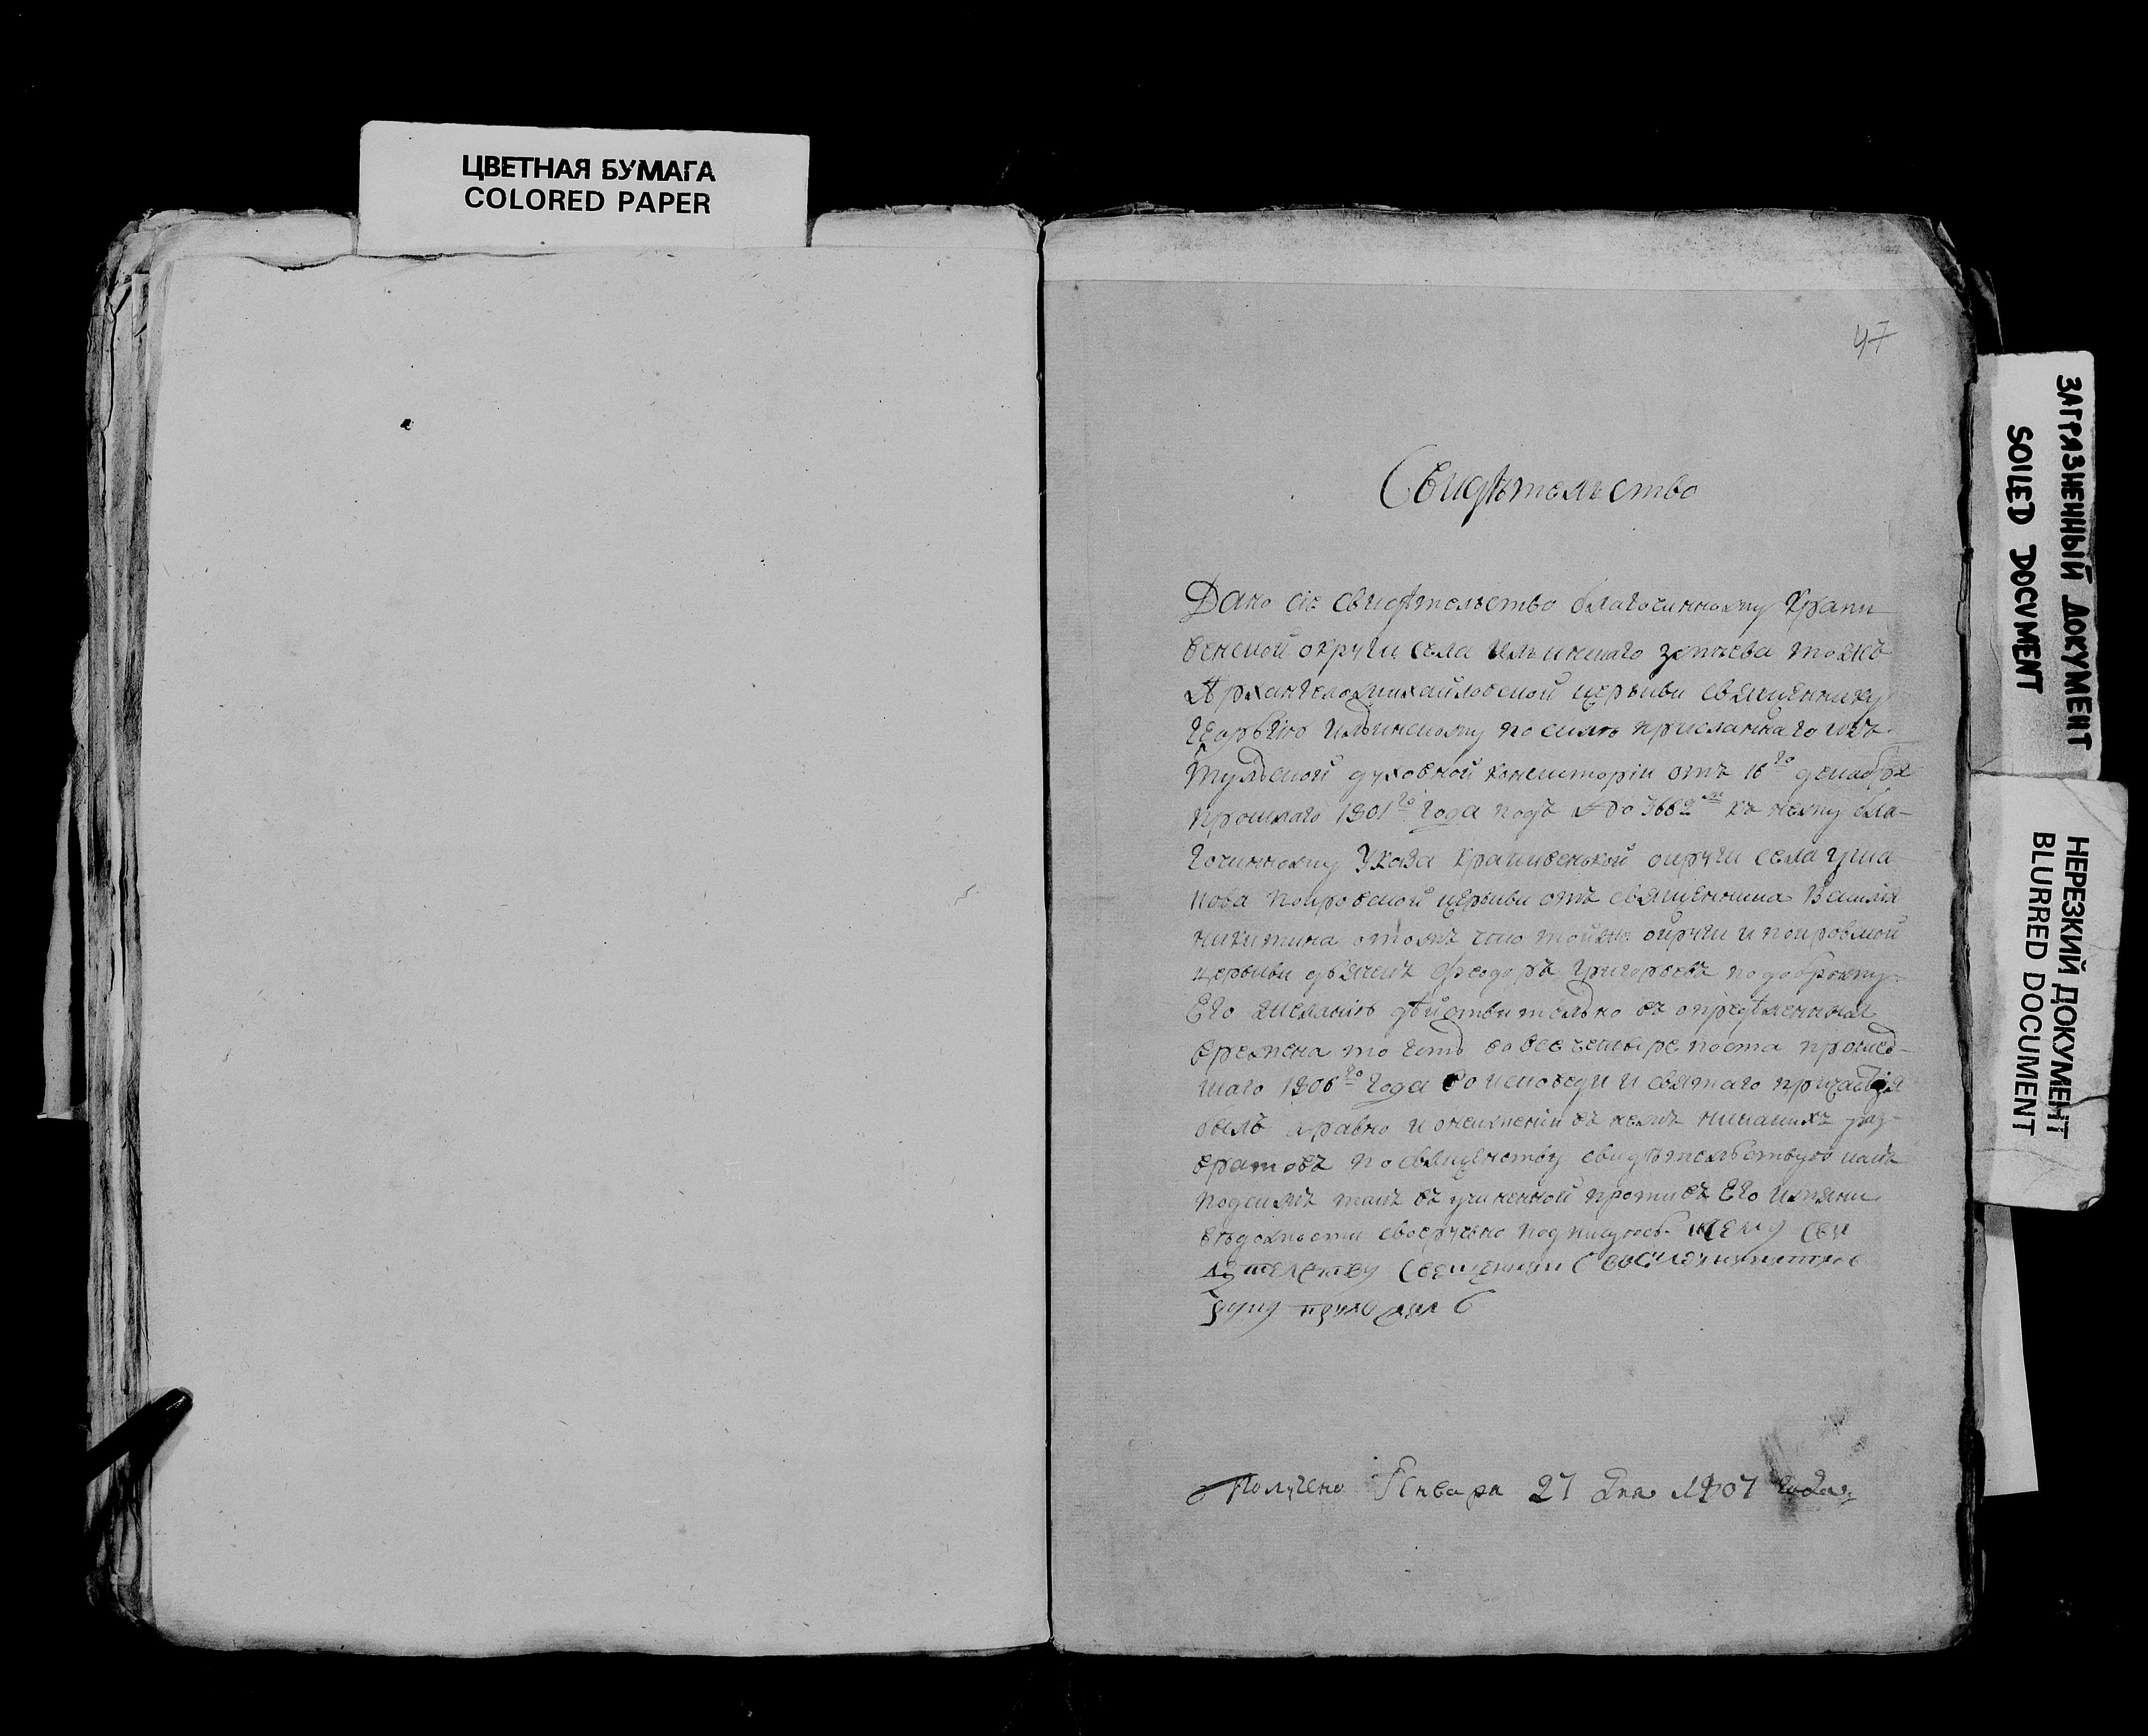 ЦВЕТНАЯ БУМАГА
COLORED PAPER
47
ЗАГРЯЗНЕННЫЙ ДОКУМЕНТ
SOILED DOCUMENT
НЕРЕЗКИЙ ДОКУМЕНТ
BLURRED DOCUMENT
Свидѣтельство
Дано сіе свидѣтельство благочинному Крапи
венской округи села Ильинскаго тожъ
Архангеломихайловской церькви священнику
Георьгію Ильинскому по силѣ присланнаго изъ
Тульской духовной консисторіи отъ 16го декабря
прошлаго 1801го года подъ № 3662мъ къ нему бла-
гочинному Указа крапивенской округи села Уша
кова покровской церькви отъ священника Василія
никитина отомъ что тойже округи и покровской
церькви дьячекъ Феодоръ Григорьевъ подоброму
Его желанію дѣйствительно въ опредѣленныя
времена то есть вовсе четыре поста прошед-
шаго 1806го года во исповеди и святаго причастія
былъ а равно и онеимении въ немъ никакихъ раз-
вратовъ посвященству свидѣтельствую какъ
подсимъ такъ въ учиненной противъ Его имяни
вѣдомости своеручно подпишуюсь къ сему сви
детелству священник василей никитинъ
руку приложил
Получено Генваря 27 дня 1807 года